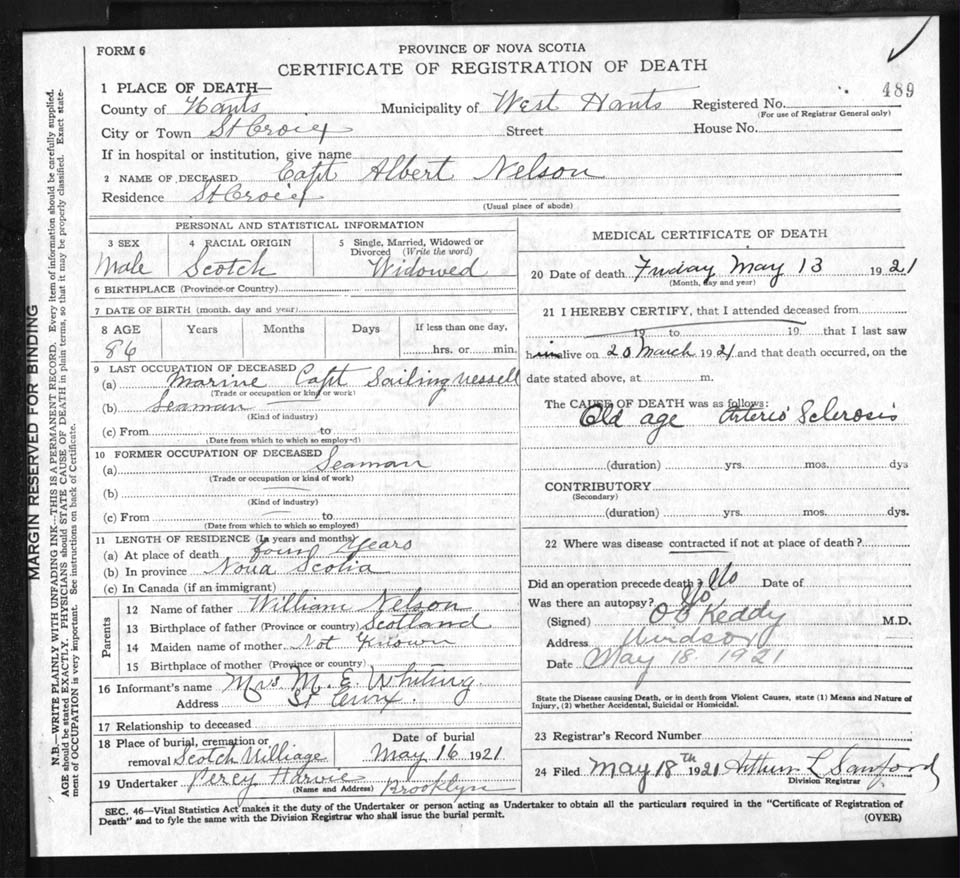 FORM 6
PROVINCE OF NOVA SCOTIA
CERTIFICATE OF REGISTRATION OF DEATH
489
1 PLACE OF DEATH—
County of Hants Municipality of West Hants Registered No.
(For use of Registrar General only)
City or Town St Croix Street House No.
If in hospital or institution, give name
2 NAME OF DECEASED Capt Albert Nelson
Residence St Croix
(Usual place of abode)
PERSONAL AND STATISTICAL INFORMATION
3 SEX 4 RACIAL ORIGIN 5 Single, Married, Widowed or
Divorced (Write the word)
Male Scotch Widowed
6 BIRTHPLACE (Province or Country)
7 DATE OF BIRTH (month, day and year)
8 AGE Years Months Days If less than one day,
86 hrs. or min.
9 LAST OCCUPATION OF DECEASED
(a) Marine Capt Sailing vessell
(Trade or occupation or kind or work)
(b) Seaman
(Kind of industry)
(c) From to
(Date from which to which so employed)
10 FORMER OCCUPATION OF DECEASED Seaman
(a)
(Trade or occupation or kind of work)
(b)
(Kind of industry)
(c) From to
(Date from which to which so employed)
11 LENGTH OF RESIDENCE (In years and months)
(a) At place of death four Years
(b) In province Nova Scotia
(c) In Canada (if an immigrant)
Parents
12 Name of father William Nelson
13 Birthplace of father (Province or country) Scotland
14 Maiden name of mother Not Known
15 Birthplace of mother (Province or country)
16 Informant's name Mrs M. E. Whiting
Address St Croix
17 Relationship to deceased
18 Place of burial, cremation or Date of burial
removal Scotch Villiage May 16 1921
19 Undertaker Percy Harvie Brooklyn
(Name and Address)
MEDICAL CERTIFICATE OF DEATH
20 Date of death Friday May 13 1921
(Month, day and year)
21 I HEREBY CERTIFY, that I attended deceased from
19 to 19 that I last saw
him alive on 20 March 1921 and that death occurred, on the
date stated above, at m.
The CAUSE OF DEATH was as follows:
Old age Arterio Sclerosis
(duration) yrs. mos. dys
CONTRIBUTORY
(Secondary)
(duration) yrs. mos. dys.
22 Where was disease contracted if not at place of death?
Did an operation precede death? No Date of
Was there an autopsy? No
(Signed) O B Keddy M.D.
Address Windsor
Date May 18 1921
State the Disease causing Death, or in death from Violent Causes, state (1) Means and Nature of
Injury, (2) whether Accidental, Suicidal or Homicidal.
23 Registrar's Record Number
24 Filed May 18th 1921 Arthur L Sanford
Division Registrar
SEC. 46—Vital Statistics Act makes it the duty of the Undertaker or person acting as Undertaker to obtain all the particulars required in the "Certificate of Registration of
Death" and to fyle the same with the Division Registrar who shall issue the burial permit.
(OVER)
MARGIN RESERVED FOR BINDING
N.B.—WRITE PLAINLY WITH UNFADING INK—THIS IS A PERMANENT RECORD. Every item of information should be carefully supplied.
AGE should be stated EXACTLY. PHYSICIANS should STATE CAUSE OF DEATH in plain terms, so that it may be properly classified. Exact state-
ment of OCCUPATION is very important. See instructions on back of Certificate.